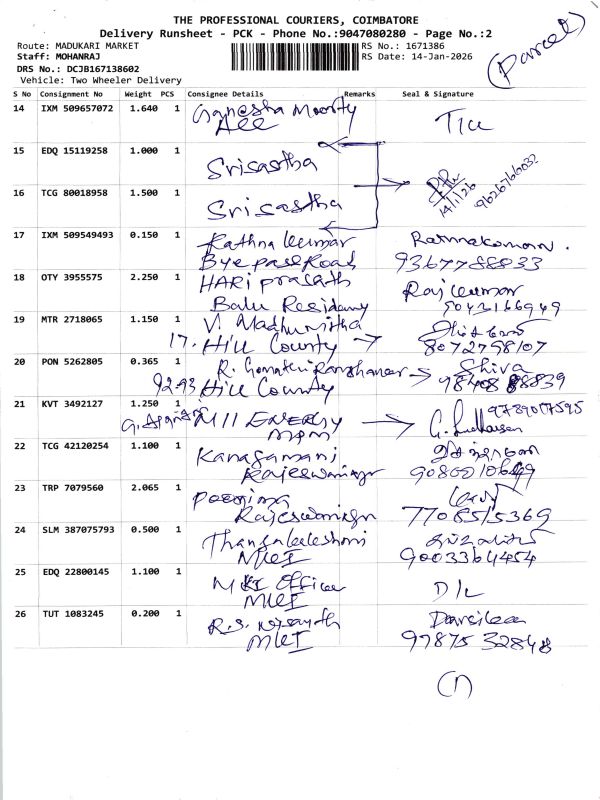 THE PROFESSIONAL COURIERS, COIMBATORE
Delivery Runsheet - PCK - Phone No.:9047080280 - Page No.:2
(Parcel)
Route: MADUKARI MARKET
RS No.: 1671386
Staff: MOHANRAJ
RS Date: 14-Jan-2026
DRS No.: DCJB167138602
Vehicle: Two Wheeler Delivery
S No Consignment No Weight PCS Consignee Details Remarks Seal & Signature
14 IXM 509657072 1.640 1 Ganesha Moorty
ACC
15 EDQ 15119258 1.000 1 Srisastha
16 TCG 80018958 1.500 1 Srisastha
14/1/26
17 IXM 509549493 0.150 1 Rathna kumar
Bye pass Road 9367788833
18 OTY 3955575 2.250 1 HARi prasath Raj kumar
Balu Residency
19 MTR 2718065 1.150 1 V. Madhumitha
17. Hill County 8072798107
20 PON 5262805 0.365 1 R. Gomathi Shiva
92.93 Hill County
21 KVT 3492127 1.250 1 M11 ENERGY 9789017595
22 TCG 42120254 1.100 1 Kanagamani
Rajeswarinagar
23 TRP 7079560 2.065 1 Poornima
Rajeswarinagar 7708515369
24 SLM 387075793 0.500 1 Thangalakshmi
9003364454
25 EDQ 22800145 1.100 1 Office
D/L
26 TUT 1083245 0.200 1 R.S.
97875 32848